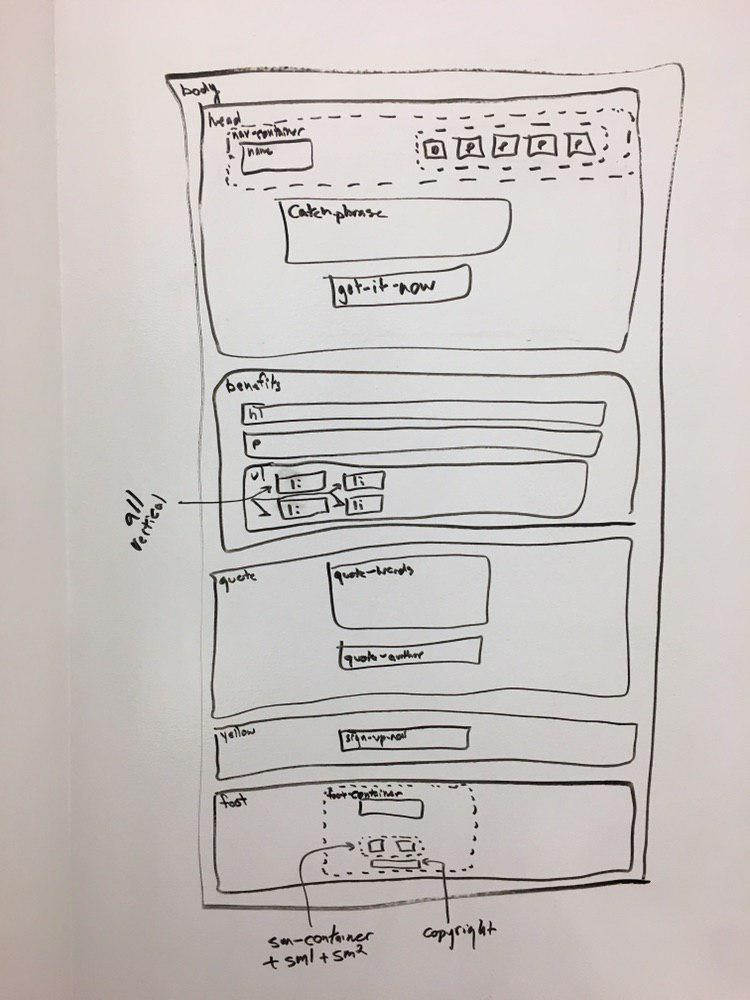 body
head
nav-container
name
p p p p p
Catch-phrase
got-it-now
benefits
h1
p
ul
li li
li li
all
vertical
quote
quote-words
quote-author
yellow
sign-up-now
foot
foot-container
sm-container
+ sm1 + sm2
copyright